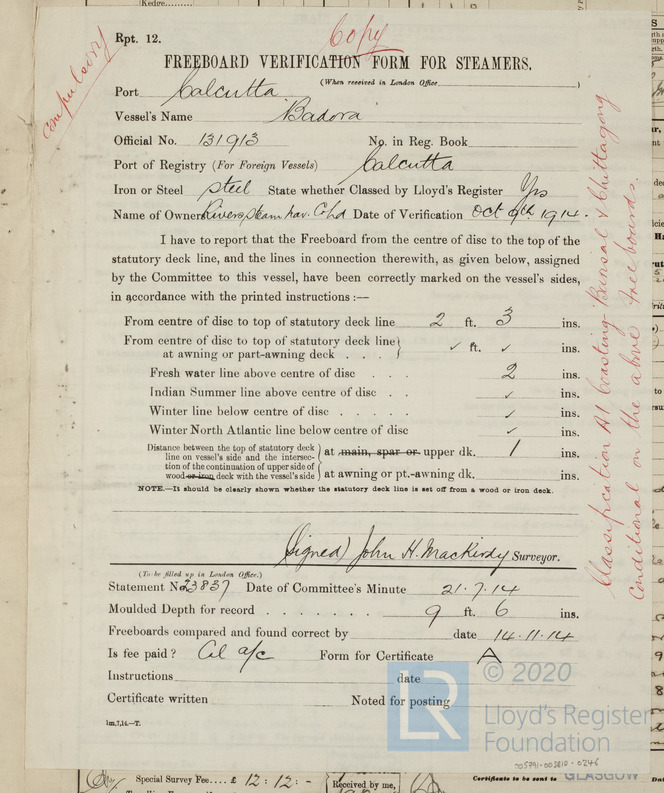 Rpt. 12.
Copy
compulsory
FREEBOARD VERIFICATION FORM FOR STEAMERS.
(When received in London Office)
Port Calcutta
Vessel's Name Badora
Official No. 131913 No. in Reg. Book
Port of Registry (For Foreign Vessels) Calcutta
Iron or Steel Steel State whether Classed by Lloyd's Register Yes
Name of Owners Rivers Steam Nav. Co Ltd Date of Verification Oct 9th 1914.
I have to report that the Freeboard from the centre of disc to the top of the
statutory deck line, and the lines in connection therewith, as given below, assigned
by the Committee to this vessel, have been correctly marked on the vessel's sides,
in accordance with the printed instructions :—
From centre of disc to top of statutory deck line 2 ft. 3 ins.
From centre of disc to top of statutory deck line
at awning or part-awning deck . . . ✓ ft. ✓ ins.
Fresh water line above centre of disc . . . 2 ins.
Indian Summer line above centre of disc . . ✓ ins.
Winter line below centre of disc . . . . . ✓ ins.
Winter North Atlantic line below centre of disc ✓ ins.
Distance between the top of statutory deck
line on vessel's side and the intersec-
tion of the continuation of upper side of
wood or iron deck with the vessel's side
at main, spar or upper dk. 1 ins.
at awning or pt.-awning dk. ins.
NOTE.—It should be clearly shown whether the statutory deck line is set off from a wood or iron deck.
(Signed) John H. MacKirdy Surveyor.
(To be filled up in London Office.)
Statement No. 23837 Date of Committee's Minute 21.7.14
Moulded Depth for record . . . . . . . 9 ft. 6 ins.
Freeboards compared and found correct by date 14.11.14
Is fee paid ? Cal a/c Form for Certificate A
Instructions date
Certificate written Noted for posting
1m,7,14.—T.
Classification A1 Coasting- Barisal & Chittagong
Conditional on the above freeboards.
© 2020
LR
Lloyd's Register
Foundation
005791-003810-0246
Special Survey Fee.... £ 12 : 12 : -
Received by me,
Certificate to be sent to GLASGOW